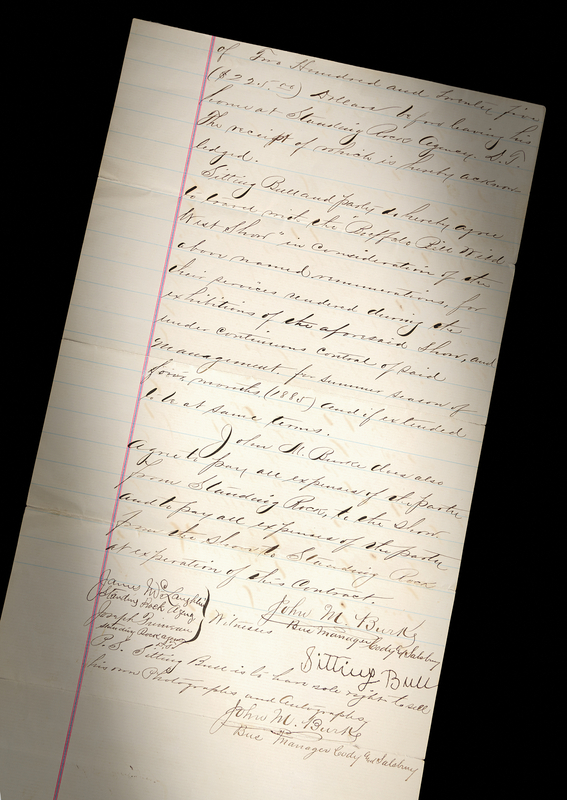 of Two Hundred and twenty five
($225.00) Dollars before leaving his
home at Standing Rock Agency. D.T.
The receipt of which is hereby acknow
ledged.
Sitting Bull and party do hereby agree
to travel with the "Buffalo Bill Wild
West Show" in consideration of the
above named renumerations, for
their services rendered during the
exhibitions of the aforesaid Show, and
under continuous control of said
Management for Summer Season of
four months, (1885) and if extended
to be at same terms.
John M. Burke does also
agree to pay all expenses of the partie
from Standing Rock, to the Show
and to pay all expenses of the partie
from the Show to Standing Rock
at experation of this Contract
James McLaughlin
Standing Rock Agency
Joseph Primeau
Standing Rock Agency
Witnesses
John M. Burke
Bus Manager Cody & Salsbury
Sitting Bull
P.S. Sitting Bull is to have sole right to sell
his own Photographs and Autographs
John M. Burke
Bus Manager Cody & Salsbury